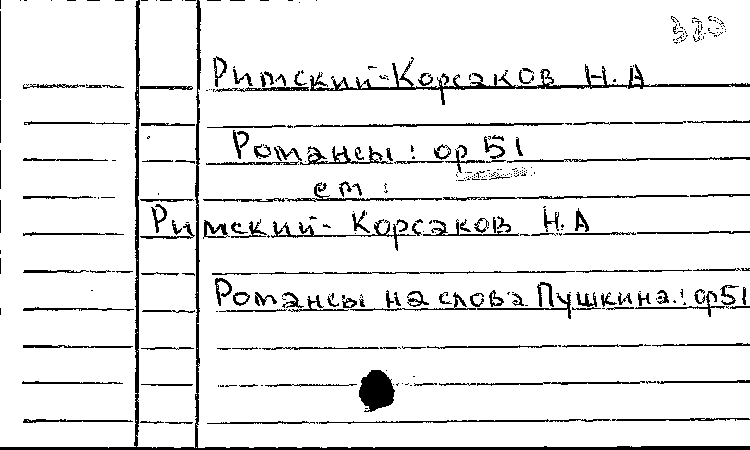 320
Римский-Корсаков Н.А
Романсы: ор 51
см:
Римский-Корсаков Н.А
Романсы на слова Пушкина.: ор51